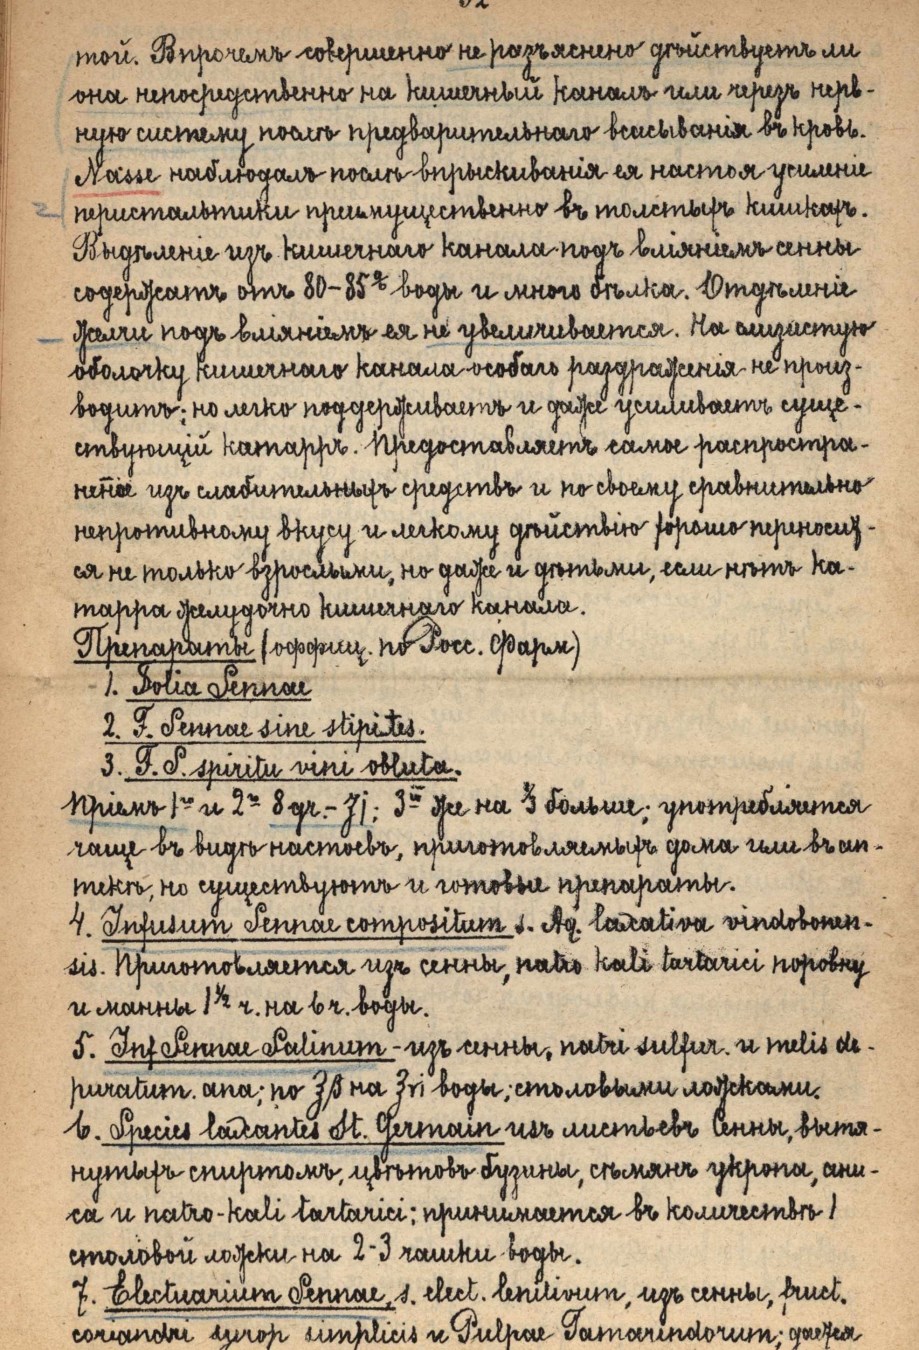 той. Впрочемъ совершенно не разъяснено дѣйствуетъ ли
она непосредственно на кишечный каналъ или черезъ нерв-
ную систему послѣ предварительнаго всасыванія въ кровь.
Nasse наблюдалъ послѣ впрыскиванія ея настоя усиленіе
перистальтики преимущественно въ толстыхъ кишкахъ.
Выдѣленіе изъ кишечнаго канала подъ вліяніемъ сенны
содержатъ отъ 80-85% воды и много бѣлка. Отдѣленіе
желчи подъ вліяніемъ ея не увеличивается. На слизистую
оболочку кишечнаго канала особаго раздраженія не произ-
водитъ; но легко поддерживаетъ и даже усиливаетъ суще-
ствующій катарръ. Предоставляетъ самое распростра-
неное изъ слабительныхъ средствъ и по своему сравнительно
непротивному вкусу и легкому дѣйствію хорошо переносит-
ся не только взрослыми, но даже и дѣтьми, если нѣтъ ка-
тарра желудочно кишечнаго канала.
Препараты (оффиц. по Росс. Фарм)
1. Folia Sennae
2. F. Sennae sine stipites.
3. F. S. spiritu vini obluta.
Пріемъ 1го и 2го 8 gr. - ʒj; 3го же на ⅓ больше; употребляется
чаще въ видѣ настоевъ, приготовляемыхъ дома или въ ап-
текѣ, но существуютъ и готовые препараты.
4. Infusum Sennae compositum s. Aq. laxativa vindobonen-
sis. Приготовляется изъ сенны, natro kali tartarici поровну
и манны 1½ ч. на 6 ч. воды.
5. Inf Sennae Salinum - изъ сенны, natri sulfur. и melis de-
puratum. ana; по ℥β на ℥vi воды; столовыми ложками.
6. Species laxantes St. Germain изъ листьевъ Сенны, вытя-
нутыхъ спиртомъ, цвѣтовъ бузины, сѣмянъ укропа, ани-
са и natro-kali tartarici; принимается въ количествѣ 1
столовой ложки на 2-3 чашки воды.
7. Electuarium Sennae, s. elect. lenitivum, изъ сенны, fruct.
coriandri syrop simplicis и Pulpae Tamarindorum; дается